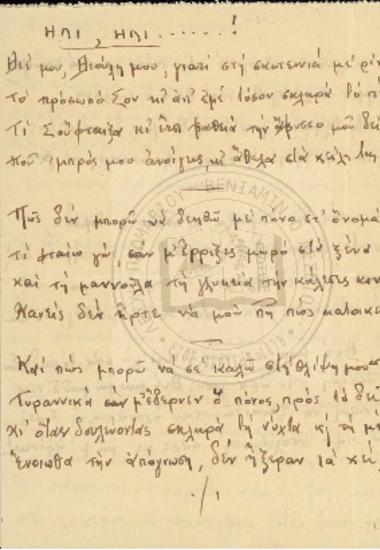 ΗΛΙ, ΗΛΙ ......!
Θεέ μου, Θεούλη μου, γιατί στή σκοτεινιά μέ ρί
τό πρόσωπό Σου κι ἀπ' ἐμέ τόσον σκληρά τό π
Τί Σοὔφταιξα κι' ἔτσι βαθειά τήν ἄβυσσο μοῦ δεί
πού 'μπρός μου ἀνοίγεις κι' ἄθελα στά χείλη της
Πῶς δέν μπορῶ νά δεηθῶ μέ πόνο στ' ὄνομά
τί φταίω γώ, σάν μ' ἔρριξες μωρό στά ξένα
καί τή μαννούλα τή γλυκειά τήν κάλεσες κον
Κανείς δέν ἦρτε νά μοῦ πῇ πώς
Καί πῶς μπορῶ νά σέ καλῶ στή θλίψη μου
Τυραννικά σάν μ' ἔδερνεν ὁ πόνος, πρός τά
κι' ὅταν δουλεύοντας σκληρά τή νύχτα κι τή μέ
ἔνοιωθα τήν ἀπόγνωση, δέν ἤξεραν τά χεί
./ι